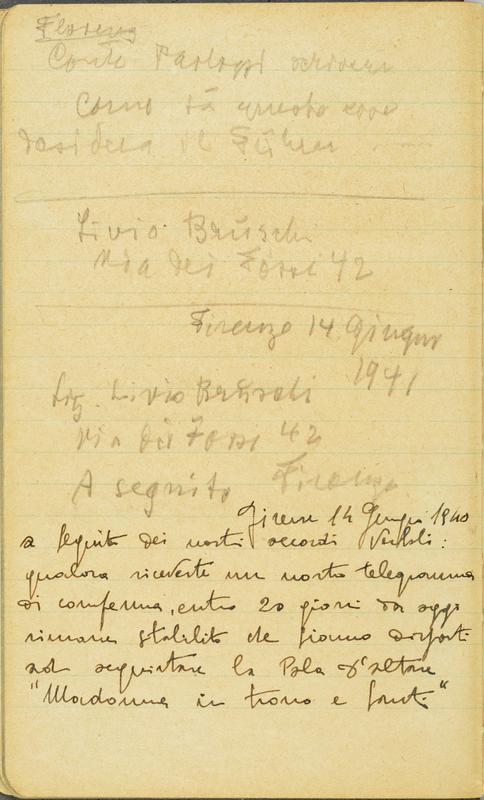 Florenz
Conte Paolozzi scrivere
Come sta questa cosa
desidera il Führer
Livio Bruschi
Via dei Fossi 42
Firenze 14 Giugno
1941
Sig. Livio Bruschi
Via dei Fossi 42
A seguito Firenze
Firenze 14 Giugno 1940
a seguito dei nostri accordi verbali:
qualora riceveste un nostro telegramma
di conferma, entro 20 giorni da oggi
rimane stabilito che siamo disposti
ad acquistare la Pala d'altare
"Madonna in trono e santi"